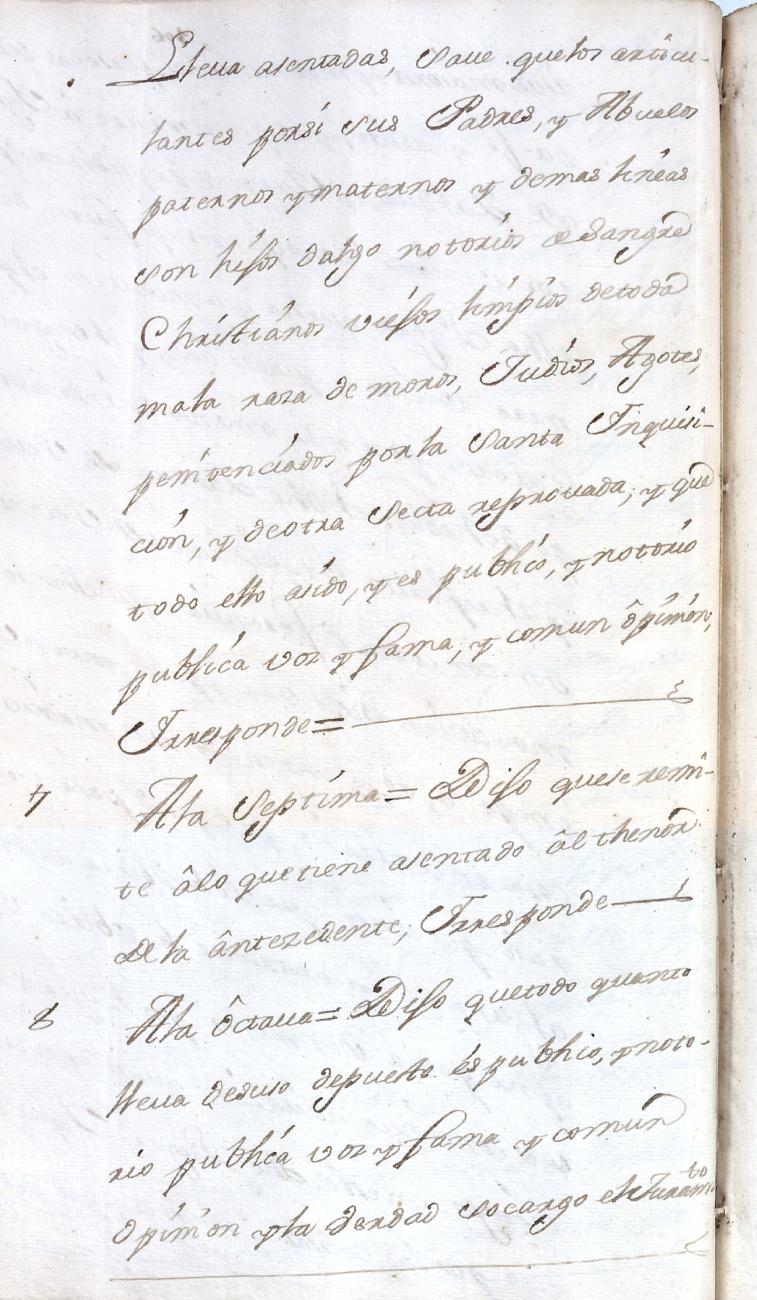 Lleua asentadas, Saue quelos articu-
lantes porsi sus Padres, y Abuelos
paternos ymaternos y demas lineas
son hijos dalgo notorios de Sangre
Christianos viejos limpios detoda
mala raza de moros, Judios, Agotes,
penitenciados por la Santa Inquisi-
ción, y deotra Secta reprouada, y que
todo ello asido, y es publico, y notorio
publica voz y fama, y comun ôpinion,
Irresponde=
7 A la Septima= Dijo quese remi-
te âlo quetiene asentado âel thenor
de la ântezedente, Irresponde
8 A la ôctaua= Dijo quetodo quanto
lleua desuso depuesto és publico, ynoto-
rio publica voz y fama y comun
opinion yla Verdad socargo el Juram.to